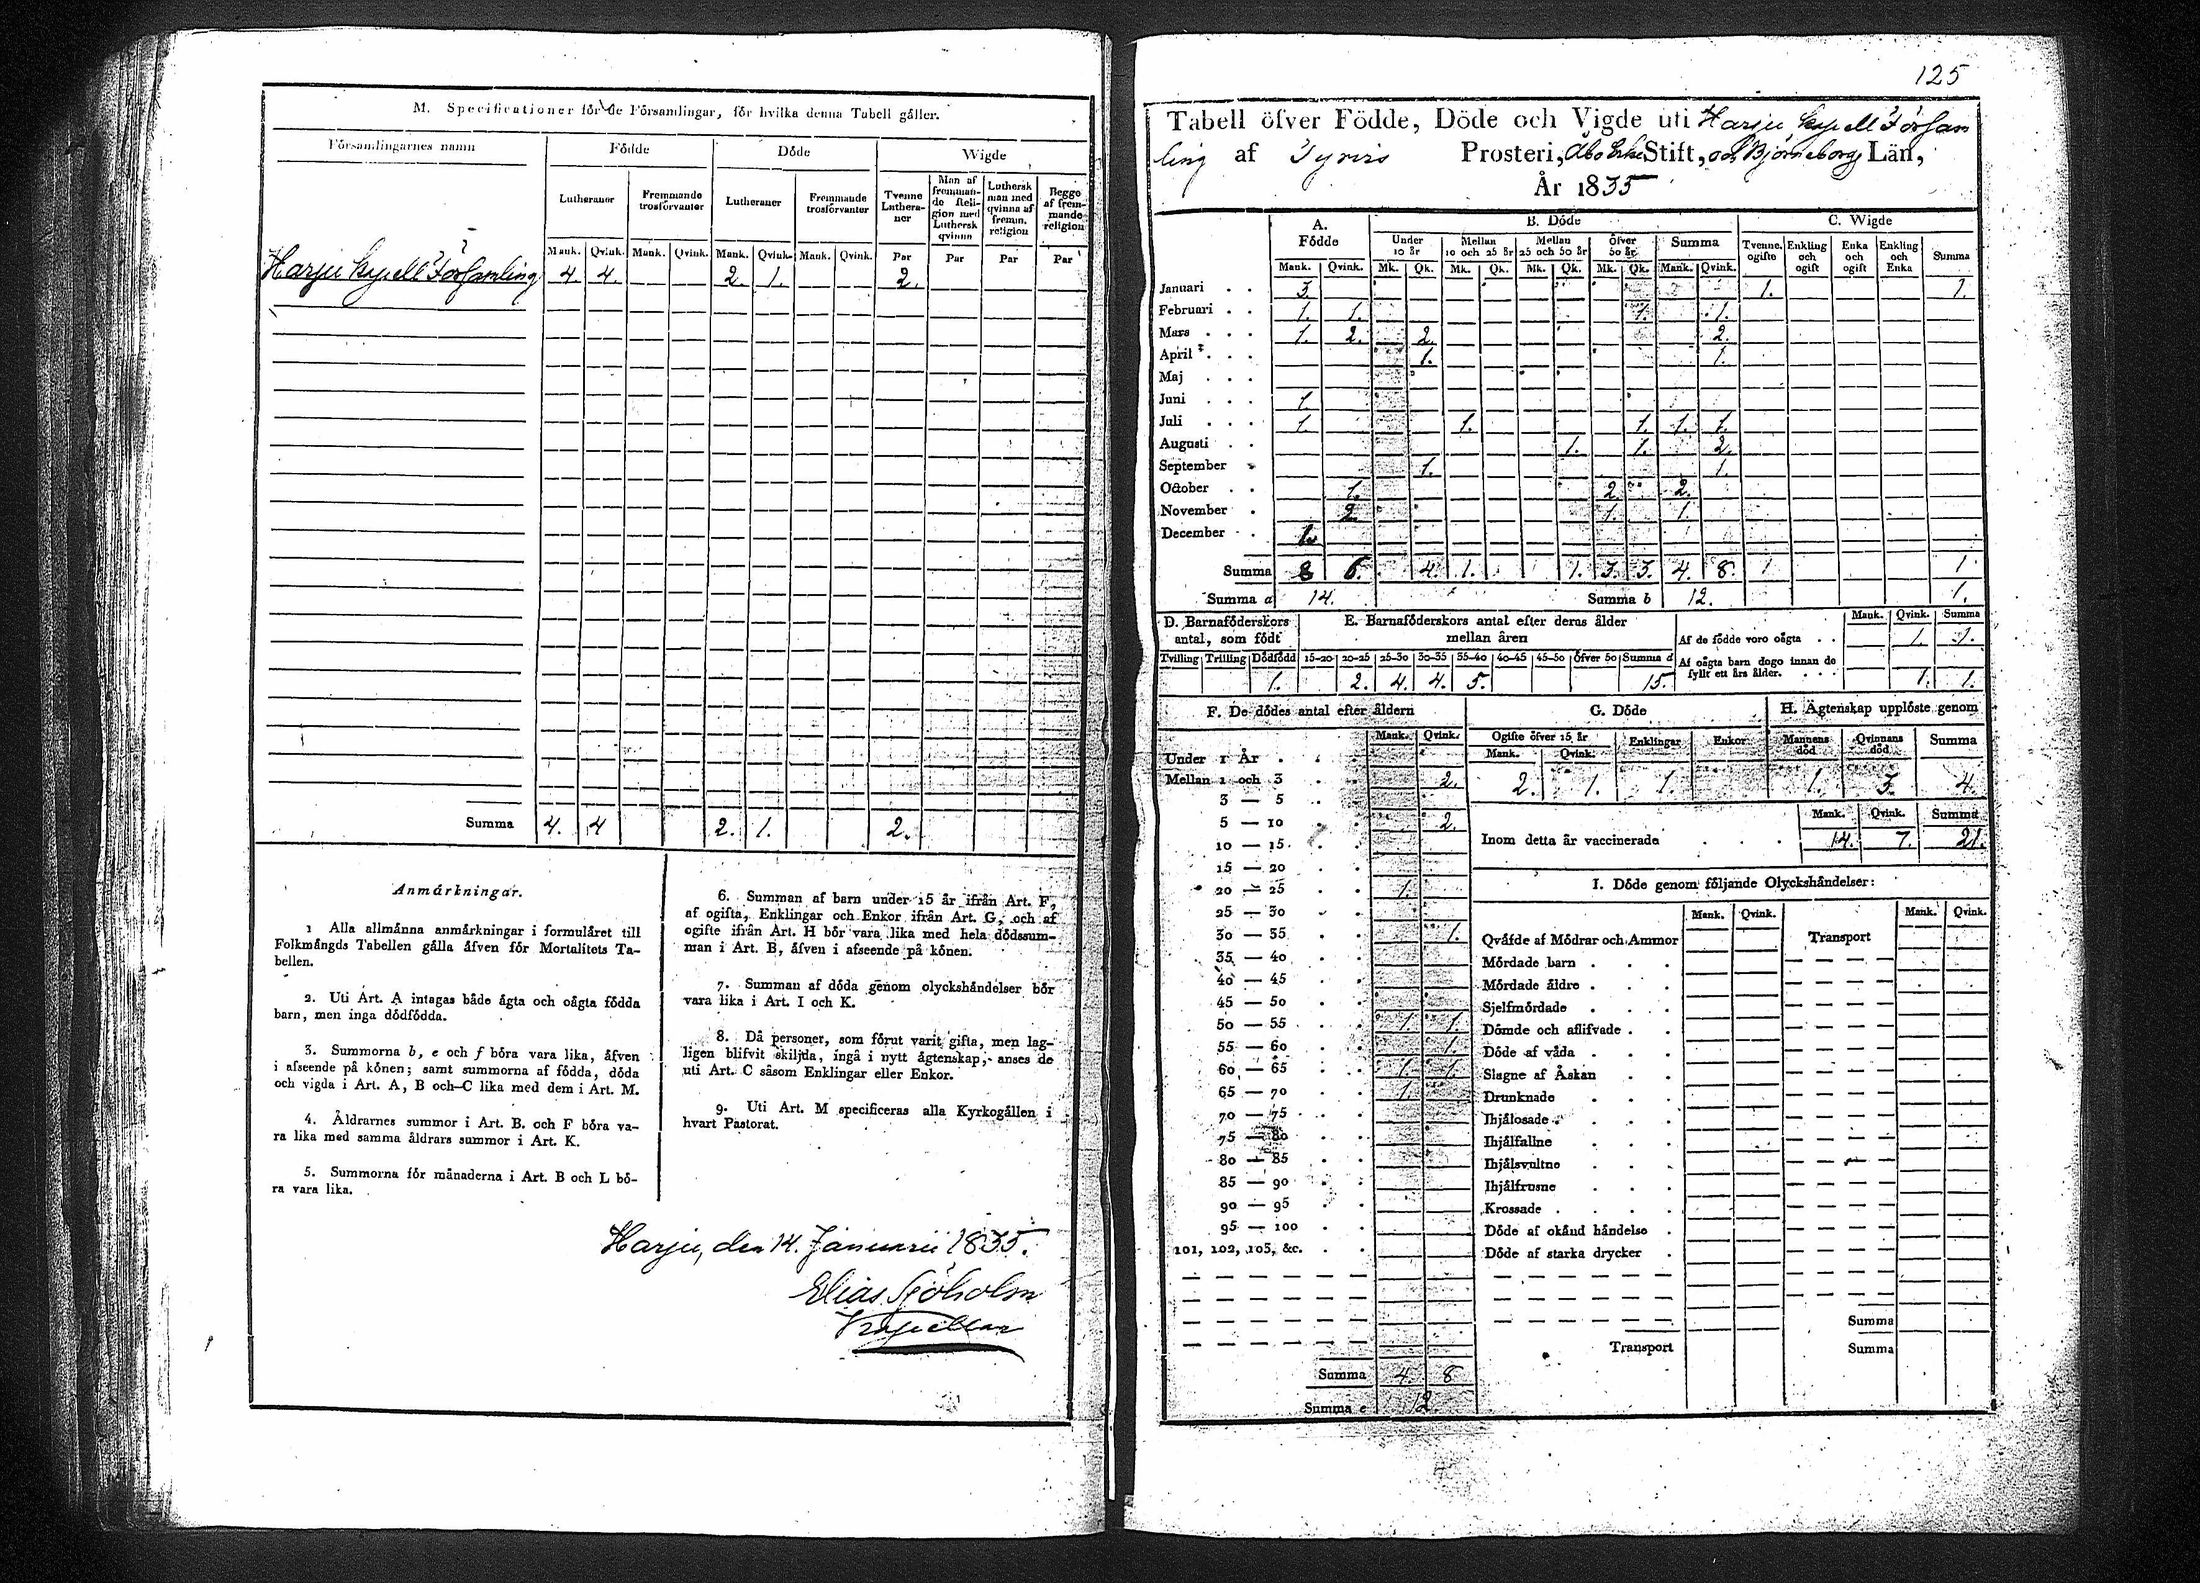 M. Specificationer för de Församlingar, för hvilka denna Tabell gäller.
Församlingarnes namn Födde Döde Wigde
Lutheraner Fremmande trosförvanter Lutheraner Fremmande trosförvanter Tvenne Lutheraner Man af fremmande Religion med Luthersk qvinna Luthersk man med qvinna af fremm. religion Begge af fremmande religion
Mank. Qvink. Mank. Qvink. Mank. Qvink. Mank. Qvink. Par Par Par Par
Harju Kapell Församling 4. 4. 2. 1. 2.
Summa 4. 4 2. 1. 2.
Anmärkningar.
1 Alla allmänna anmärkningar i formuläret till
Folkmängds Tabellen gälla äfven för Mortalitets Ta-
bellen.
2. Uti Art. A intagas både ägta och oägta födda
barn, men inga dödfödda.
3. Summorna b, e och f böra vara lika, äfven
i afseende på könen; samt summorna af födda, döda
och vigda i Art. A, B och C lika med dem i Art. M.
4. Åldrarnes summor i Art. B. och F böra va-
ra lika med samma åldrars summor i Art. K.
5. Summorna för månaderna i Art. B och L bö-
ra vara lika.
6. Summan af barn under 15 år ifrån Art. F,
af ogifta, Enklingar och Enkor ifrån Art. G, och af
ogifte ifrån Art. H bör vara lika med hela dödssum-
man i Art. B, äfven i afseende på könen.
7. Summan af döda genom olyckshändelser bör
vara lika i Art. I och K.
8. Då personer, som förut varit gifta, men lag-
ligen blifvit skiljda, ingå i nytt ägtenskap, anses de
uti Art. C såsom Enklingar eller Enkor.
9. Uti Art. M specificeras alla Kyrkogällen i
hvart Pastorat.
Harju, den 14. Januarii 1835.
Elias Sjöholm
Kapellan
125
Tabell öfver Födde, Döde och Vigde uti Harju Kapell Försam
ling af Tyrvis Prosteri, Åbo Erke Stift, och Björneborgs Län,
År 1835
A. Födde B. Döde C. Wigde
Under 10 år Mellan 10 och 25 år Mellan 25 och 50 år Öfver 50 år Summa Tvenne ogifte Enkling och ogift Enka och ogift Enkling och Enka Summa
Mank. Qvink. Mk. Qk. Mk. Qk. Mk. Qk. Mk. Qk. Mank. Qvink.
Januari 3. 1. 1.
Februari 1. 1. 1. 1.
Mars 1. 2. 2. 2.
April 1. 1.
Maj
Juni 1.
Juli 1. 1. 1. 1. 1.
Augusti 1. 1. 2.
September 1. 1.
October 1. 2. 2.
November 2. 1. 1.
December 1.
Summa 8 6. 4. 1. 1. 3. 3. 4. 8. 1 1
Summa a 14. Summa b 12. 1.
D. Barnaföderskors antal, som födt
Tvilling Trilling Dödfödd
1.
E. Barnaföderskors antal efter deras ålder
mellan åren
15-20 20-25 25-30 30-35 35-40 40-45 45-50 Öfver 50 Summa d
2. 4. 4. 5. 15.
Mank. Qvink. Summa
Af de födde voro oägta 1. 1.
Af oägta barn dogo innan de
fyllt ett års ålder. 1. 1.
F. De dödes antal efter åldern
Mank. Qvink.
Under 1 År
Mellan 1 och 3 2.
3 — 5
5 — 10 2.
10 — 15
15 — 20
20 — 25 1.
25 — 30
30 — 35 1.
35 — 40
40 — 45
45 — 50
50 — 55 1. 1.
55 — 60 1.
60 — 65 1. 1.
65 — 70 1.
70 — 75
75 — 80
80 — 85
85 — 90
90 — 95
95 — 100
101, 102, 103, &c.
Summa 4. 8
Summa e 12.
G. Döde
Ogifte öfver 15 år Enklingar Enkor
Mank. Qvink.
2. 1. 1.
H. Ägtenskap upplöste genom
Mannens död Qvinnans död Summa
1. 3. 4.
Mank. Qvink. Summa
Inom detta år vaccinerade 14. 7. 21.
I. Döde genom följande Olyckshändelser:
Mank. Qvink. Mank. Qvink.
Qväfde af Mödrar och Ammor Transport
Mördade barn
Mördade äldre
Sjelfmördade
Dömde och aflifvade
Döde af våda
Slagne af Åskan
Drunknade
Ihjälosade
Ihjälfallne
Ihjälsvultne
Ihjälfrusne
Krossade
Döde af okänd händelse
Döde af starka drycker
Summa
Transport Summa